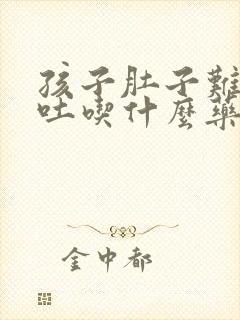 孩子肚子難
吐喫什麼藥
金中都